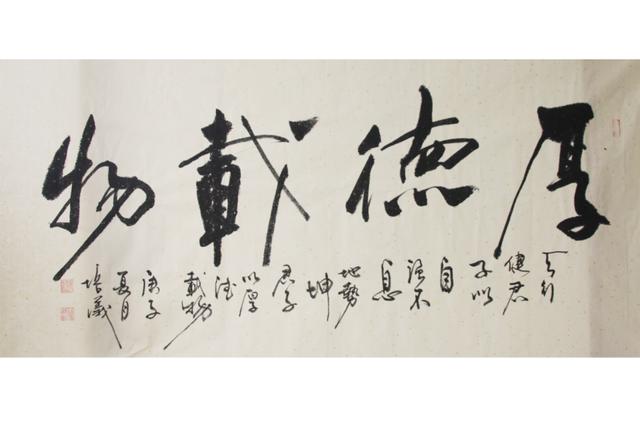 厚德載物
天行
健君
子以
自
強不
息
地勢
坤
君子
以厚
德
載物
庚子
夏月
培義